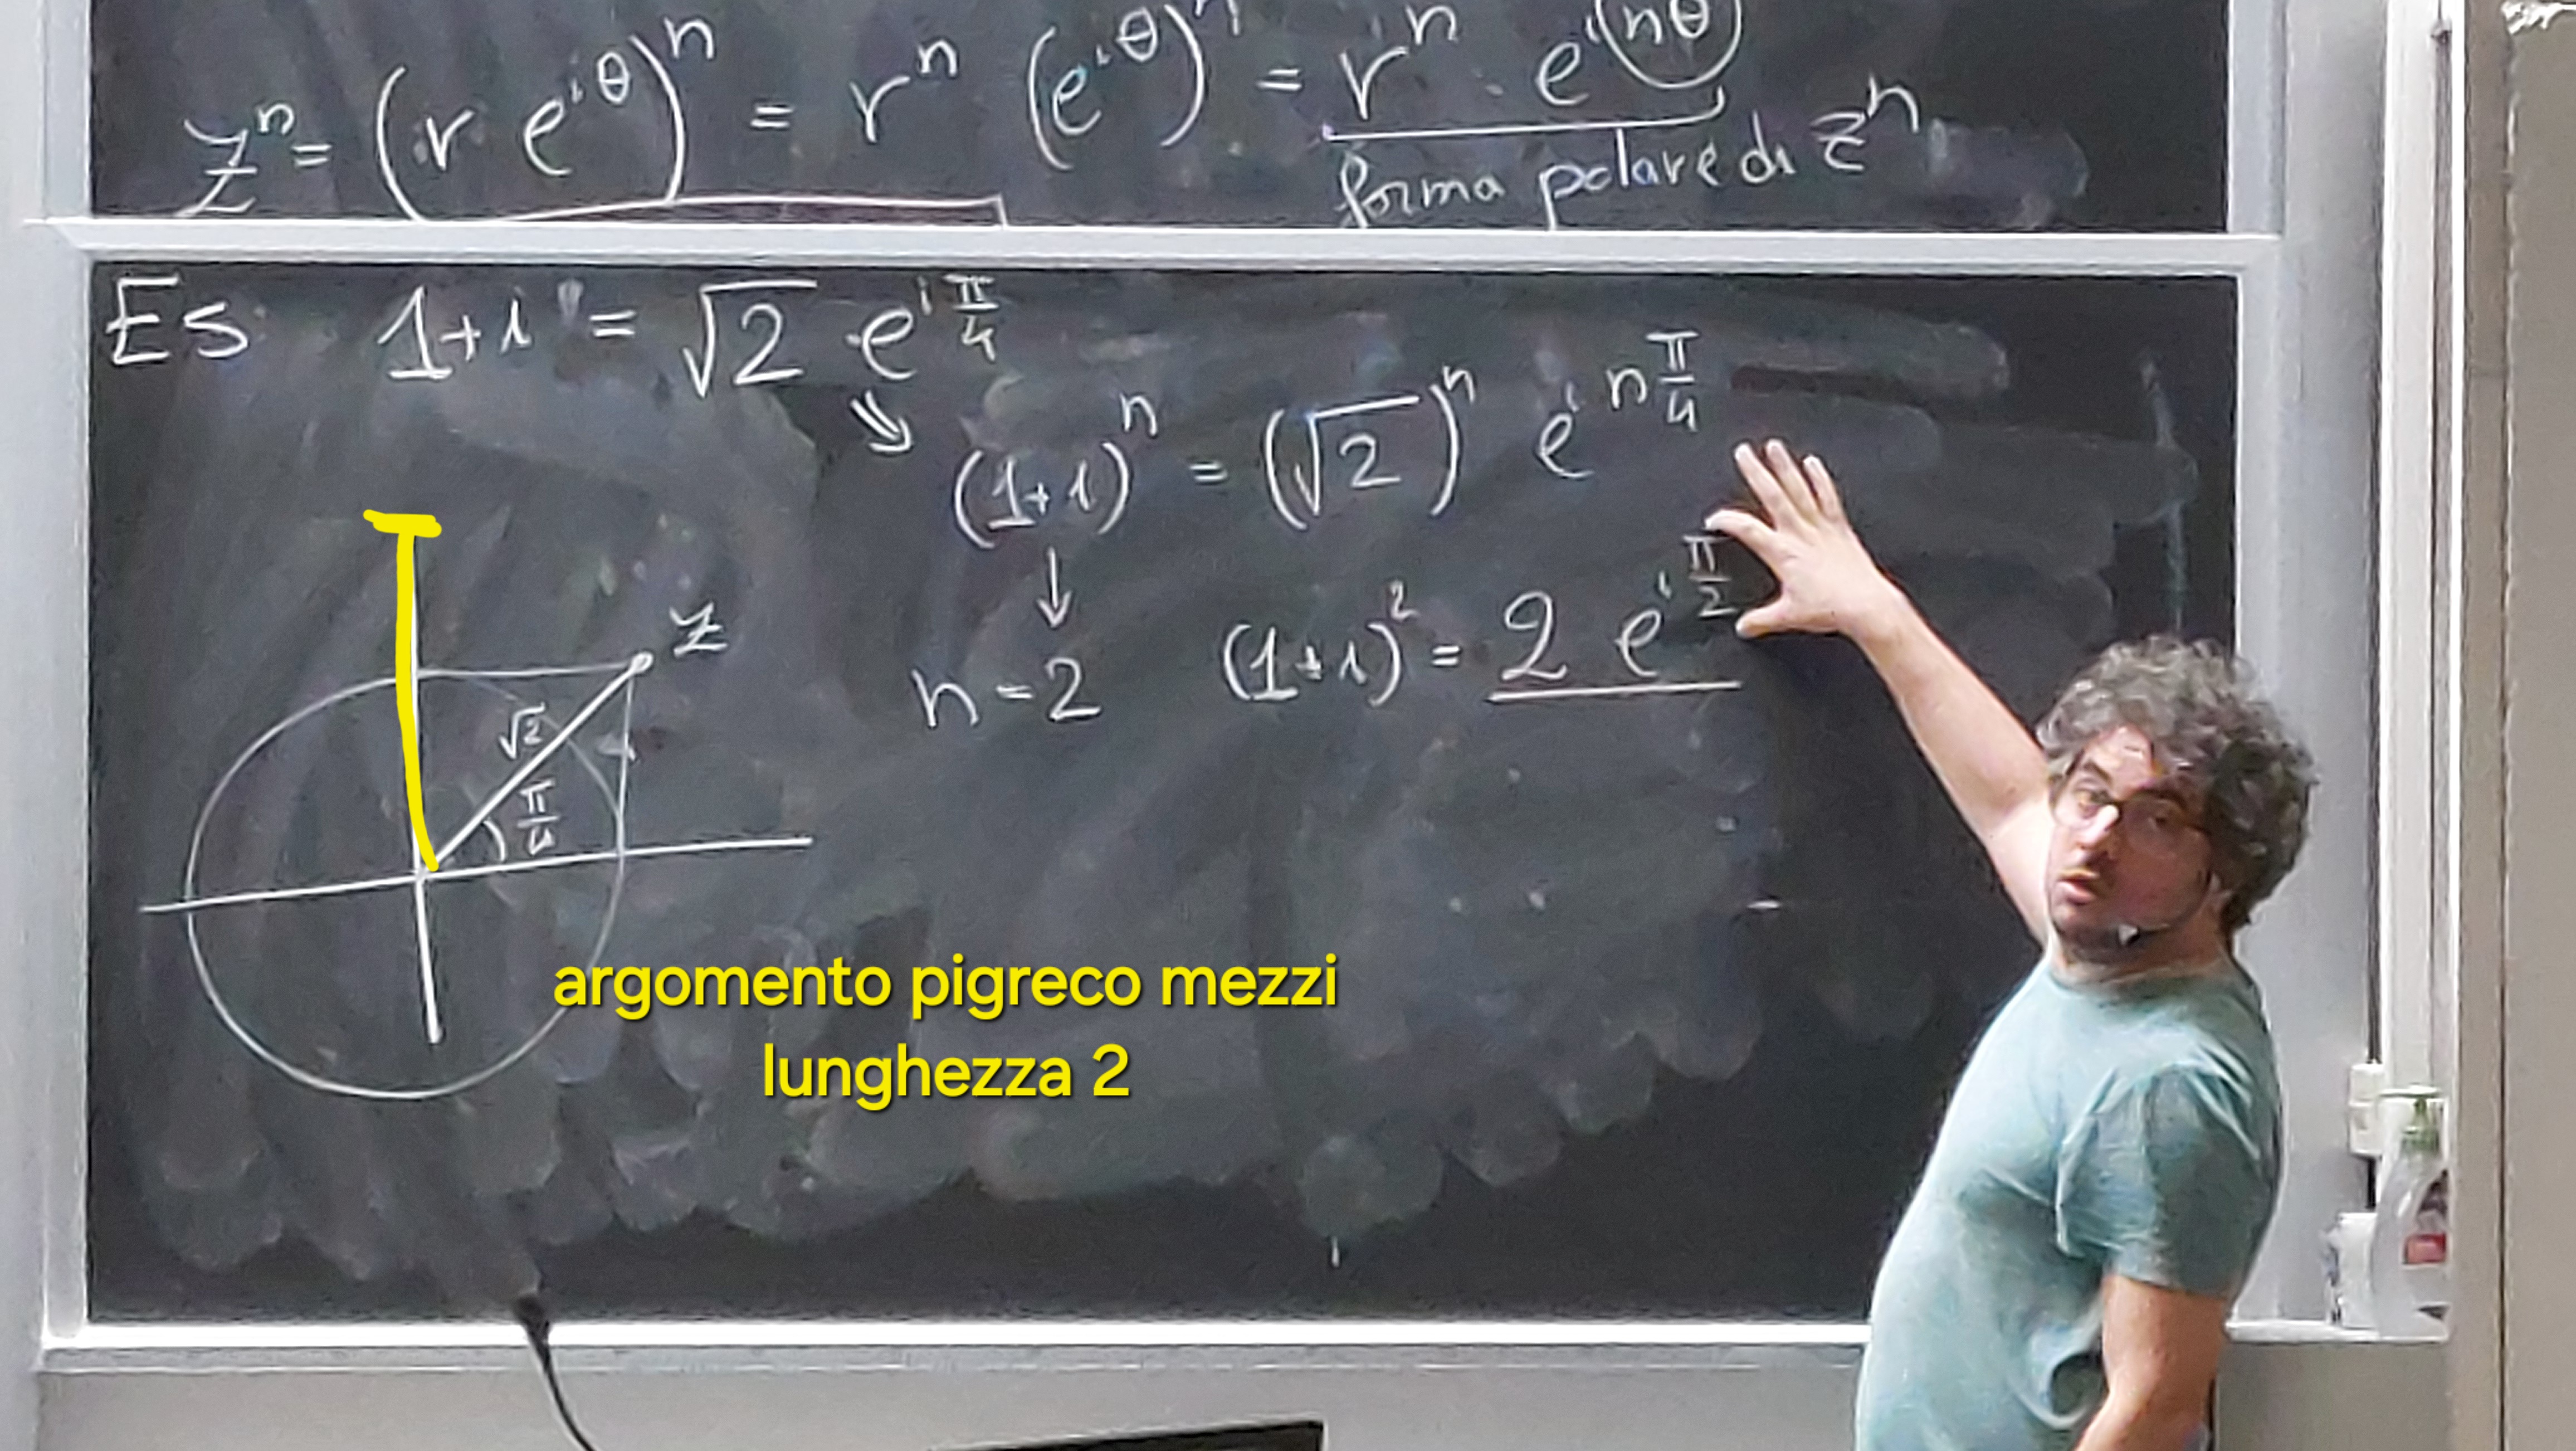 zⁿ = (r e^{iθ})ⁿ = rⁿ (e^{iθ})ⁿ = rⁿ · e^{i(nθ)}
forma polare di zⁿ
Es. 1+i = √2 e^{i π/4}
⇒ (1+i)ⁿ = (√2)ⁿ e^{i n π/4}
↓
n=2 (1+i)² = 2 e^{i π/2}
z
√2
π/4
argomento pigreco mezzi
lunghezza 2